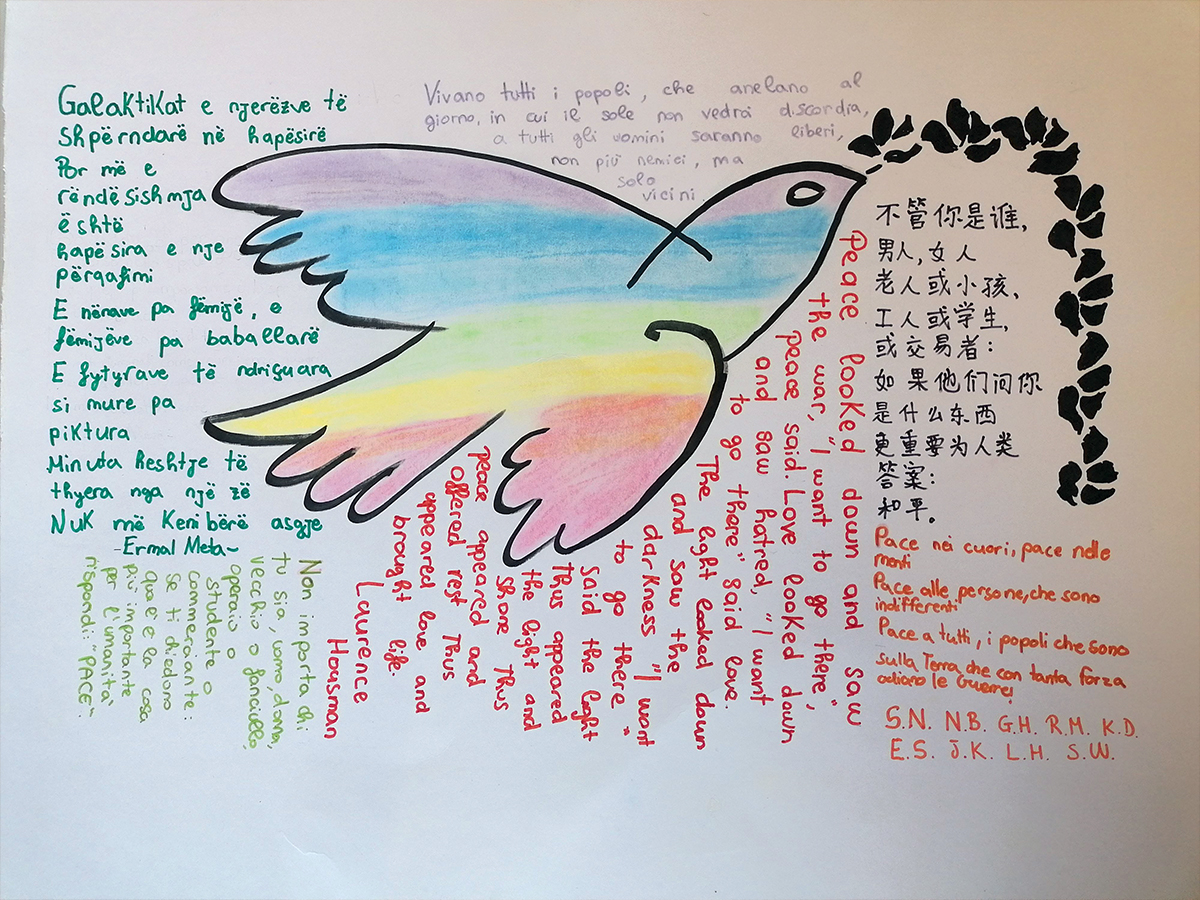 Galaktikat e njerëzve të
shpërndarë në hapësirë
Por më e
rëndësishmja
është
hapësira e nje
përqafimi
E nënave pa fëmijë, e
fëmijëve pa baballarë
E fytyrave të ndriçuara
si mure pa
piktura
Minuta heshtje të
thyera nga një zë
Nuk më Keni bërë asgje
-Ermal Meta-
Vivano tutti i popoli, che anelano al
giorno, in cui il sole non vedrà discordia,
a tutti gli uomini saranno liberi,
non più nemici, ma
solo
vicini.
不管你是谁,
男人,女人
老人或小孩,
工人或学生,
或交易者:
如果他们问你
是什么东西
更重要为人类
答案:
和平。
Peace looked down and saw
the war, "I want to go there",
peace said. Love looked down
and saw hatred, "I want
to go there" said love.
The light looked down
and saw the
darkness "I want
to go there"
said the light
Thus appeared
the light and
shone Thus
peace appeared and
offered rest Thus
appeared love and
brought life.
Laurence
Housman
Non importa chi
tu sia, uomo, donna,
vecchio o fanciullo,
operaio o
studente o
commerciante:
se ti chiedono
qual'è la cosa
più importante
per l'umanità
rispondi: "PACE".
Pace nei cuori, pace nelle
menti
Pace alle persone, che sono
indifferenti
Pace a tutti, i popoli che sono
sulla Terra, che con tanta forza
odiano le Guerre!
S.N. N.B. G.H. R.M. K.D.
E.S. J.K. L.H. S.W.